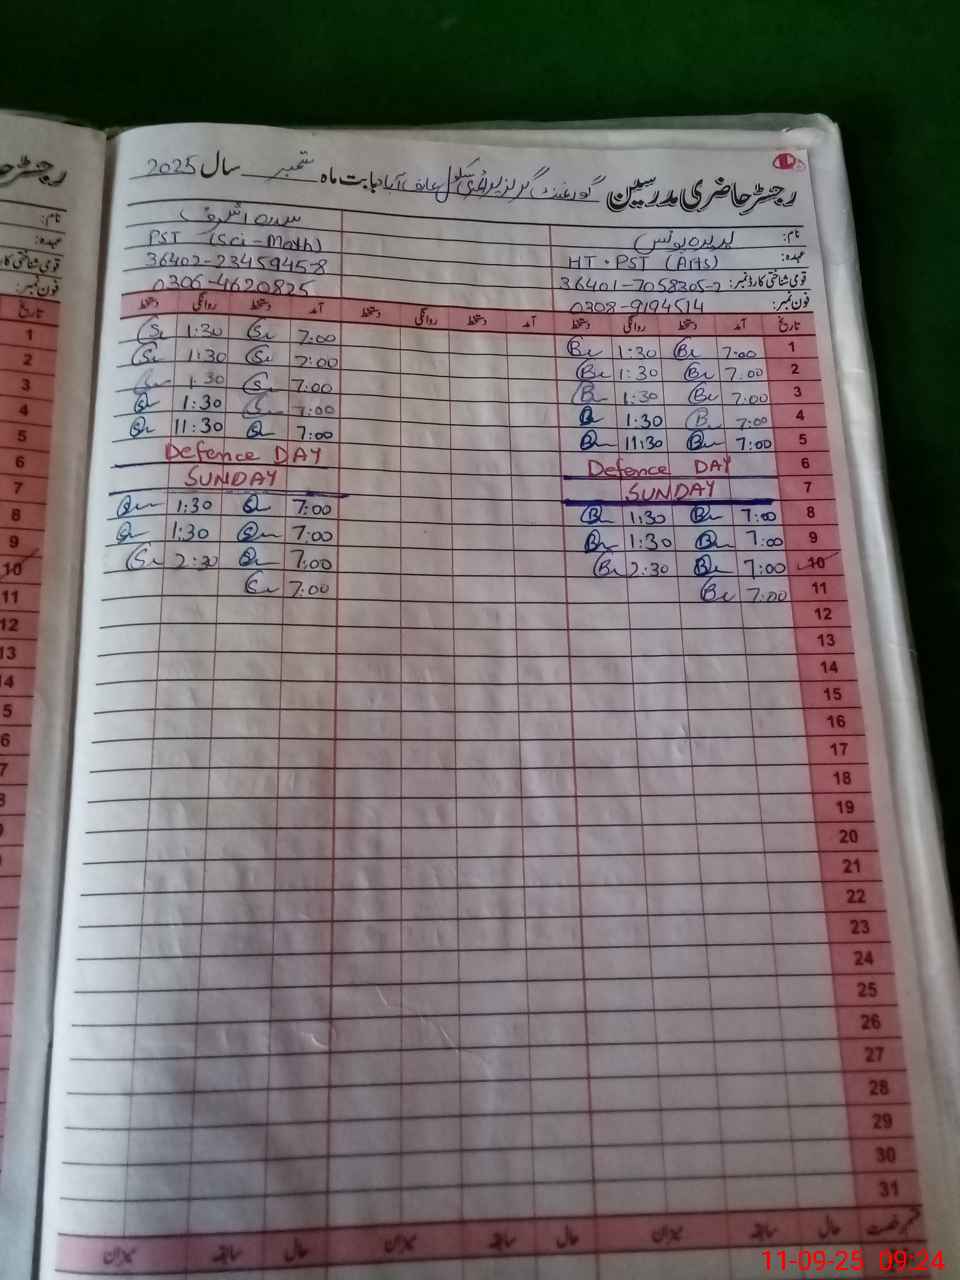 رجسٹر حاضری مدرسین گورنمنٹ گرلز پرائمری سکول عارف آباد بابت ماہ ستمبر سال 2025
نام: سدرہ اشرف
عہدہ: HT . PST (Arts) PST (Sci - Math)
قومی شناختی کارڈ نمبر: 36401-7058305-2 36402-2345945-8
فون نمبر: 0308-9194514 0306-4620825
تاریخ آمد دستخط روانگی دستخط آمد دستخط روانگی دستخط آمد دستخط روانگی دستخط
1 7:00 1:30 7:00 1:30
2 7:00 1:30 7:00 1:30
3 7:00 1:30 7:00 1:30
4 7:00 1:30 7:00 1:30
5 7:00 11:30 7:00 11:30
6 Defence DAY Defence DAY
7 SUNDAY SUNDAY
8 7:00 1:30 7:00 1:30
9 7:00 1:30 7:00 1:30
10 7:00 2:30 7:00 2:30
11 7:00 7:00
12
13
14
15
16
17
18
19
20
21
22
23
24
25
26
27
28
29
30
31
حال سابقہ میزان حال سابقہ میزان حال سابقہ میزان
رجسٹر حا
نام:
عہدہ:
قومی شناختی کارڈ
فون نمبر:
تاریخ
1
2
3
4
5
6
7
8
9
10
11
12
13
14
11-09-25 09:24